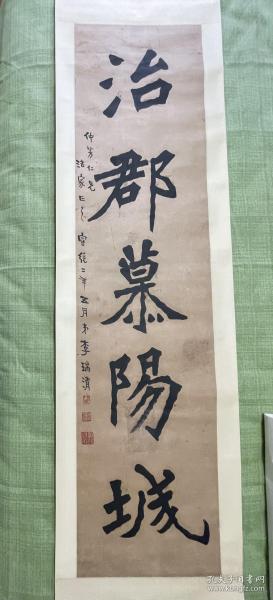 治郡慕陽城
仲芳仁兄
法家正之 宣統二年五月弟李瑞清
孔夫子旧书网